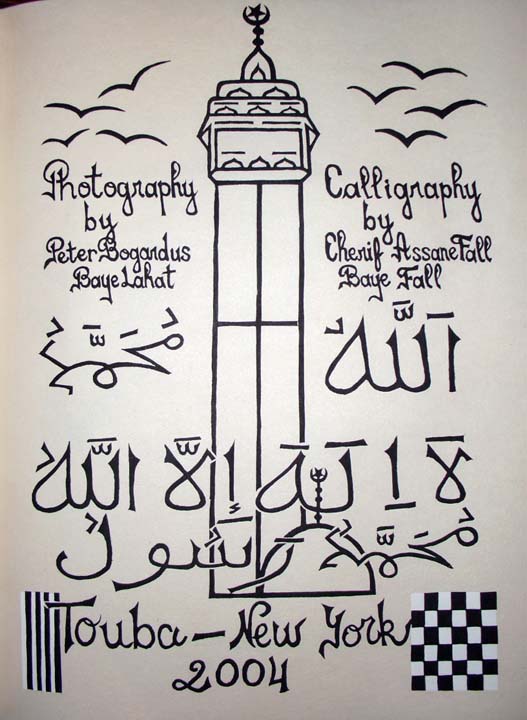 Photography
by
Peter Bogardus
Baye Lahat
Calligraphy
by
Cherif Assane Fall
Baye Fall
مُحَمَّدُ
اَللَّهُ
لَا اِلَهَ إِلاَّ اللَّهُ
مُحَمَّدُ رَسُولُ
Touba - New York
2004